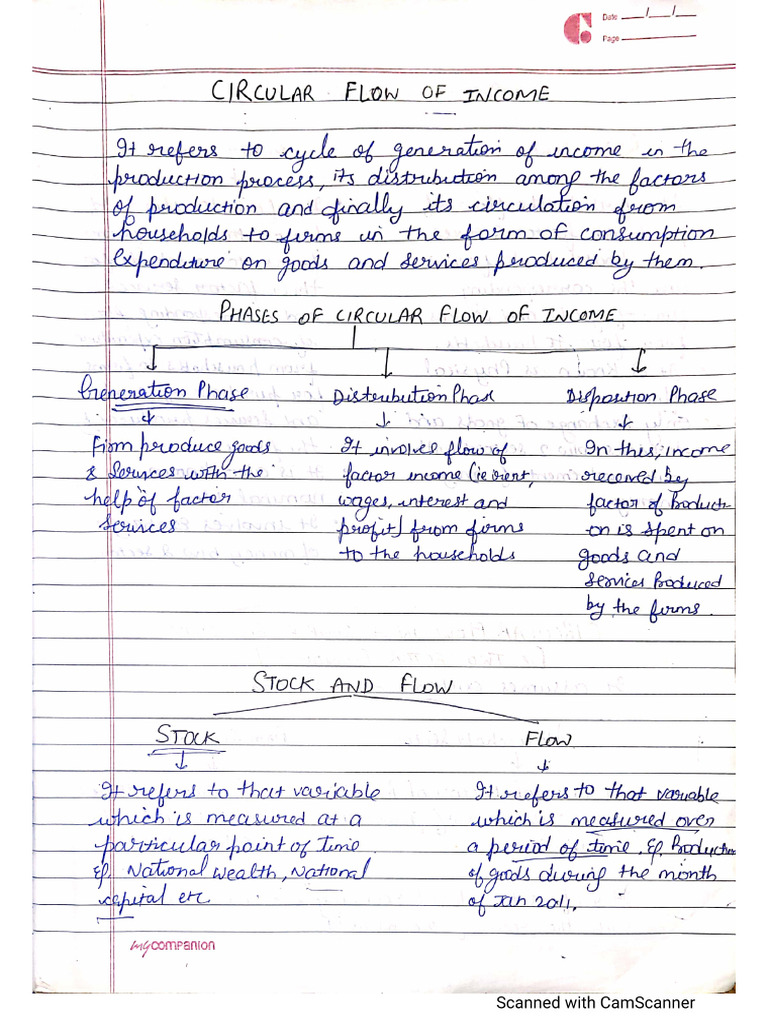 Date __/__/__
Page
CIRCULAR FLOW OF INCOME
It refers to cycle of generation of income in the
production process, its distribution among the factors
of production and finally its circulation from
households to firms in the form of consumption
Expenditure on goods and services produced by them.
PHASES OF CIRCULAR FLOW OF INCOME
Generation Phase
Firm produce goods
& services with the
help of factor
services
Distribution Phase
It involves flow of
factor income (ie rent,
wages, interest and
profit) from firms
to the households
Disposition Phase
In this, income
received by
factor of Producti-
on is spent on
goods and
services Produced
by the firms.
STOCK AND FLOW
STOCK
It refers to that variable
which is measured at a
particular point of time
Eg. National Wealth, National
capital etc.
FLOW
It refers to that variable
which is measured over
a period of time. Eg. Production
of goods during the month
of Jan 2011.
mycompanion
Scanned with CamScanner